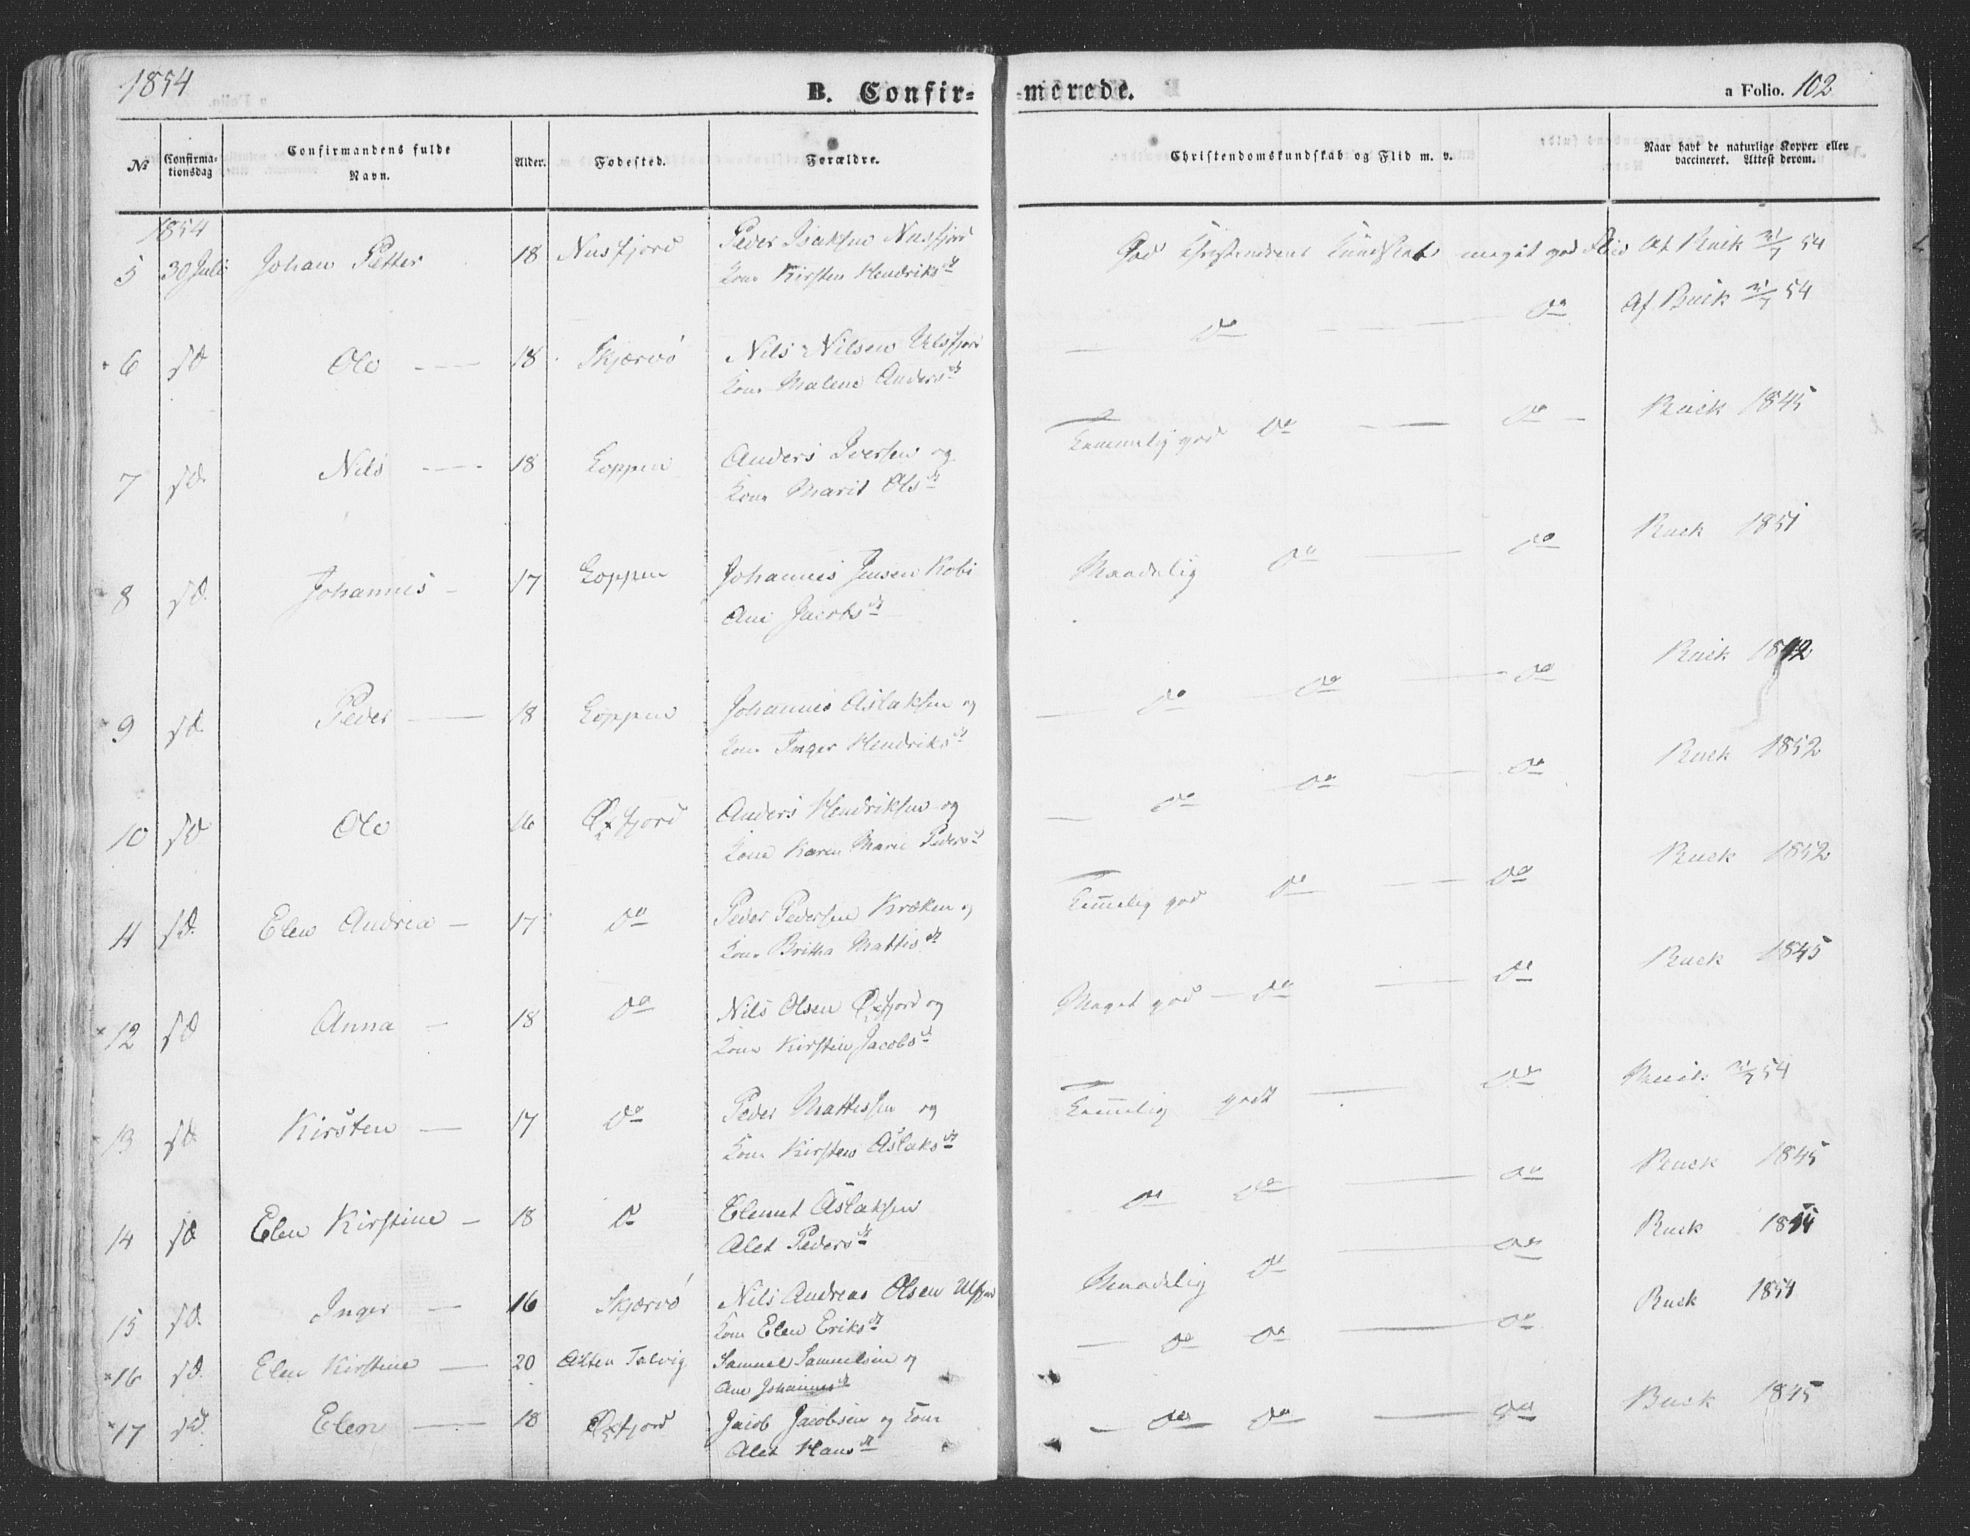 1854
B. Confir-
merede.
a Folio. 102
№
Confirma-
tionsdag
Confirmandens fulde
Navn.
Alder.
Fødested.
Forældre.
Christendomskundskab og Flid m. v.
Naar havt de naturlige Kopper eller
vaccineret. Attest derom.
1854
5 30 Juli Johan Petter 18 Nusfjord Peder Isaksen Nusfjord
Kone Kirsten Hendriksdt
God Christendoms Kundskab meget god Flid Af Buck 21/7 54
6 do Ole 18 Skjærvö Nils Nilsen Ulsfjord
Kone Malene Andersdt
do do Af Buck 21/7 54
7 do Nils 18 Loppen Anders Iversen og
Kone Marit Olsdt
Temmelig god do do Buck 1845
8 do Johannes 17 Loppen Johannes Jensen
Ane Jacobsdt
Maadelig do do Buck 1851
9 do Peder 18 Loppen Johannes Aslaksen og
Kone Inger Hendriksdt
do do do Buck
10 do Ole 16 Øxfjord Anders Hendriksen og
Kone Karen Marie Pedersdt
do do do Buck 1852
11 do Elen Andrea 17 do Peder Pedersen Kræken og
Kone Britha Mattisdt
Temmelig god do do Buck 1852
12 do Anna 18 do Nils Olsen Øxfjord og
Kone Kirsten Jacobsdt
Meget god do do Buck 1845
13 do Kirsten 17 do Peder Mathissen og
Kone Kirsten Aslaksdt
Temmelig godt do Buck 21/7 54
14 do Elen Kirstine 18 do Clemet Aslaksen
Alet Pedersdt
do do do Buck 1845
15 do Inger 16 Skjærvö Nils Andreas Olsen Ulfjord
Kone Elen Eriksdt
Maadelig do do Buck
16 do Elen Kirstine 20 Alten Talvig Samuel Samuelsen og
Ane Johannesdt
do do do Buck 1851
17 do Elen 18 Øxfjord Jacob Jacobsen og Kone
Alet Hansdt
do do do Buck 1845